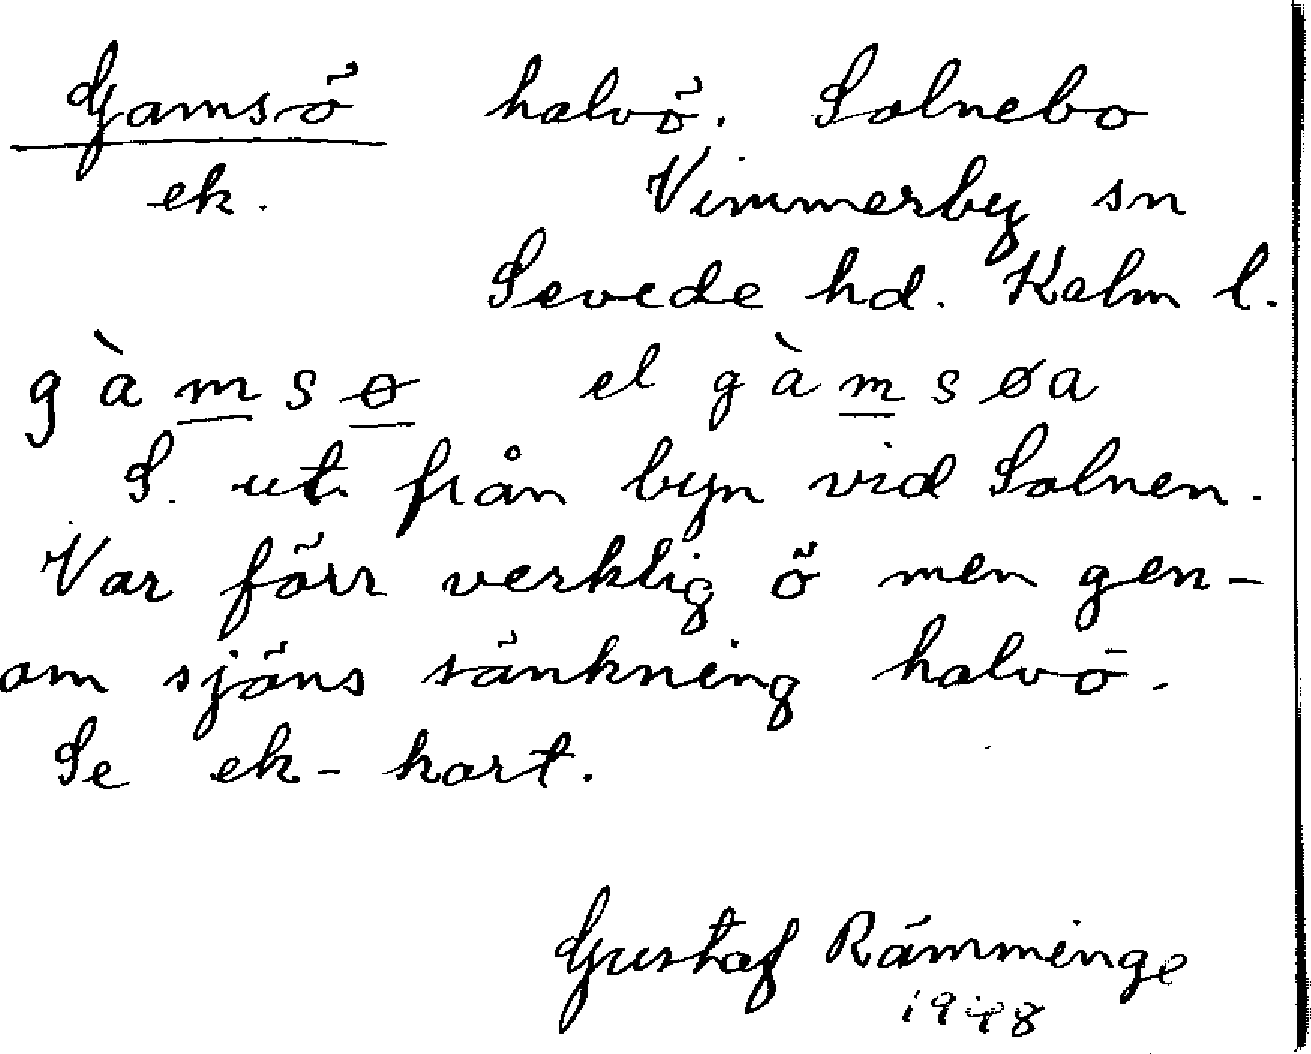 Gamsö halvö. Solnebo
ek. Vimmerby sn
Sevede hd. Kalm l.
gàmsø el gàmsøa
S. ut från byn vid Solnen.
Var förr verklig ö men gen-
om sjöns sänkning halvö.
Se ek-kart.
Gustaf Rämminge
1948